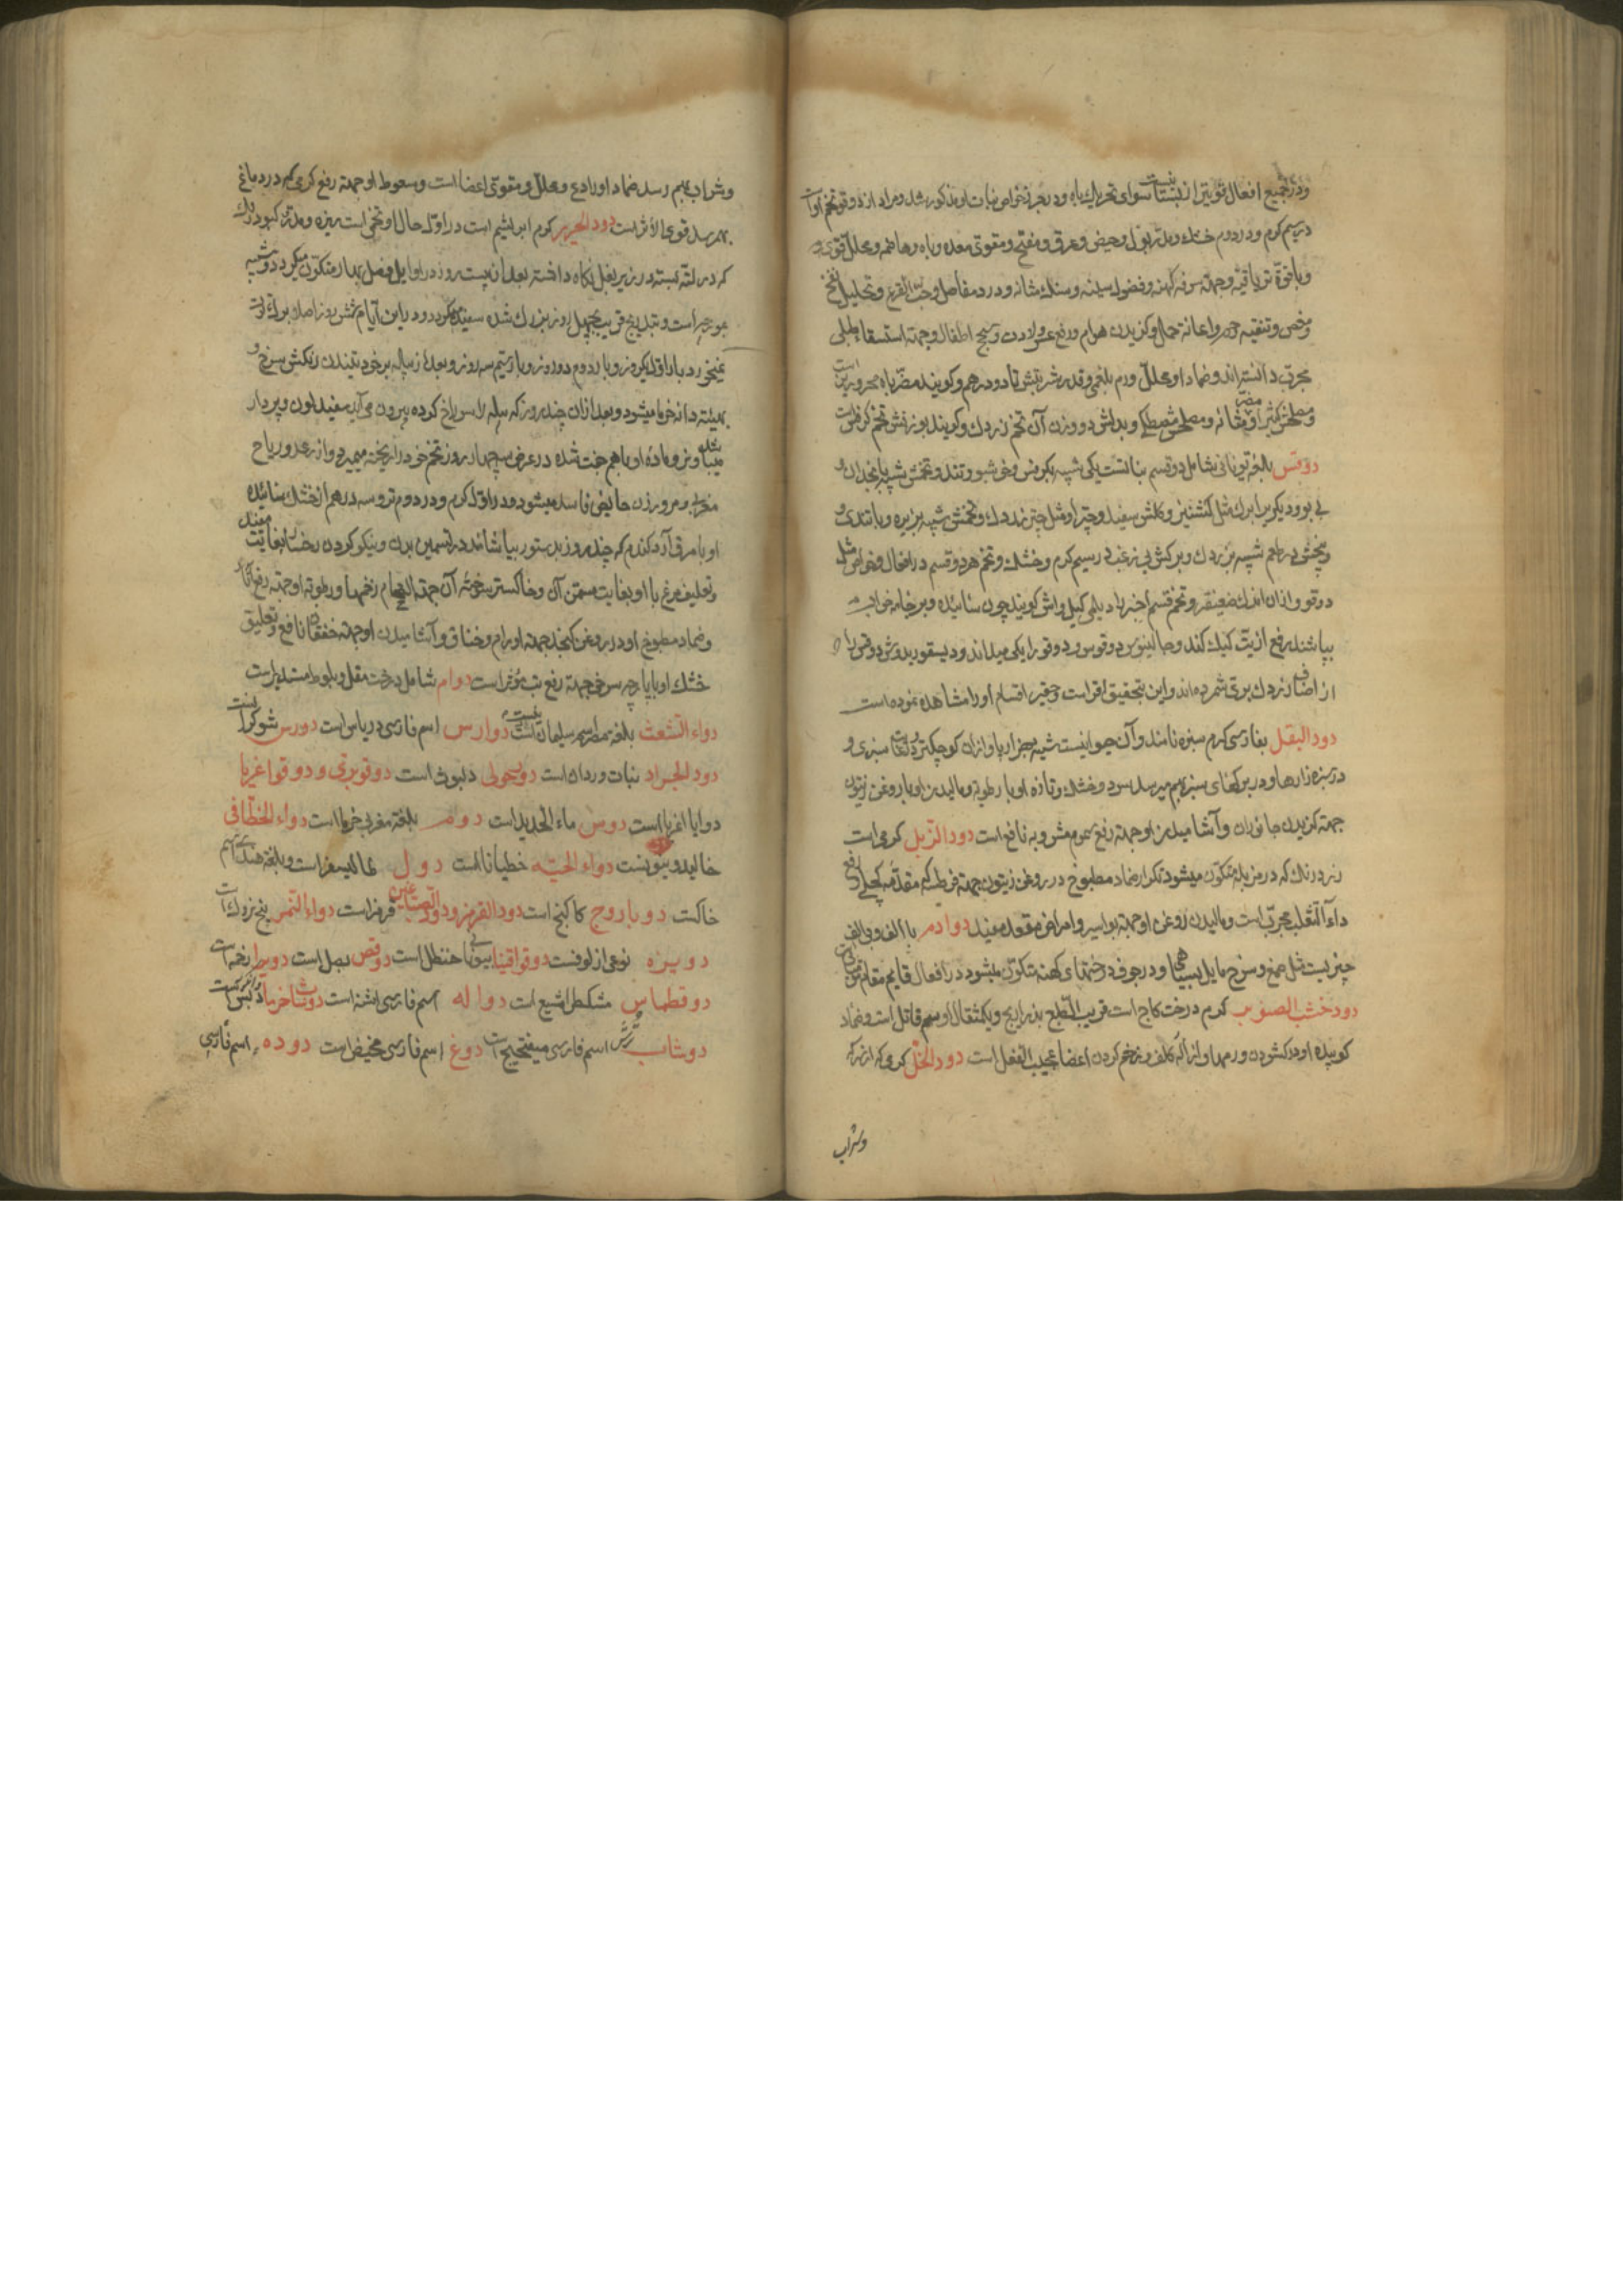 ودر جمیع افعال قویتر از بستانیست سوای تحریک باه و در بعر تخواص نبات او مذکور شد و مراد از دوقو تخم اوست
در سیم کرم و در دوم خشک و مدر بول و حیض و عرق و مفتح و مقوی معده و باه و هاضمه و محلل قوی و
و با قوة تریاقیة و جهته سرفه کهنه و فضول سینه و سنک مثانه و درد مفاصل و حب القرع و تحلیل نفخ
و مغص و تنقیه رحم و اعانت حمل و کزیدن هوام و رفع عسر ولادت و سحج اطفال و جهته استسقاء طبلی
مجرب دانسته اند و ضماد او محلل ورم بلغمی و قدر شربتش تا دو درهم و کویند مضر باه محرورین است
و مصلحش کثیرا و مضر مثانه و مصلحش مصطکی و بدلش دو وزن آن تخم زردک و کویند بوزنش تخم کرفس است
دوقس بلغة یونانی شامل دو قسم نباتست یکی شبیه بکرفس و خوشبو و تند و تخمش شبیه بانجدان و
بی بو و دیکری را برک مثل کشنیز و کلش سفید و چتر او مثل چتر زردک و تخمش شبیه بزیره و با تندی و
و بیخش بی طعم شبیه بزردک و برکش بی زغب در سیم کرم و خشک و تخم هر دو قسم در افعال و خواص مثل
دوقو و از آن اندک ضعیفتر و تخم قسم اخیر را دیلمی کیل واش کویند چون سائیده و بر جامه خواب
بپاشند رفع اذیت کیک کند و جالینوس دوقوس و دوقو را یکی میداند و دیسقوریدوس دوقس را
از اصناف زردک بری شمرده اند و این بتحقیق اقربست و حقیر اقسام او را مشاهده نموده است
دود البقل بفارسی کرم سبزه نامند و آن حیوانیست شبیه بهزارپا و از آن کوچکتر و بغایت سبزی و
در سبزه زارها و در برکهای سبز بهم میرسد سرد و خشک و تازه او با رطوبة و مالیدن او با روغن زیتون
جهته کزیدن جانوران و آشامیدن او جهته رفع سموم مشروبه نافع است دود الزبل کرمی است
زرد رنک که در مزبله متکون میشود تکرار ضماد مطبوخ در روغن زیتون جهته قرطسه که مقدمه کچلی و رفع
داء الثعلب مجربست و مالیدن روغن او جهته بواسیر و امراض مقعد مفید دوادم با الف و بی الف
چیزیست مثل صمغ و سرخ مایل بسیاهی و در جوف درختهای کهنه متکون میشود در افعال قایم مقام مومیائیست
دود خشب الصنوبر کرم درخت کاج است قریب الطبع بذراریح و یکمثقال او سم قاتل است و ضماد
کوبیده او در کشودن ورمها و ازاله کلف و زخم کردن اعضا عجیب الفعل است دود الخل کرمی که از سرکه
وشراب
وشراب بهم رسد ضماد او رادع و محلل و مقوی اعضا است و سعوط او جهته رفع کرمی که در دماغ
بهم رسد قوی الاثر است دود الحریر کرم ابریشم است در اول حال او تخمی است ریزه و مدور کبود رنک
که در لته بسته در زیر بغل نکاه داشته بعد از بیست روز در اوایل فصل بهار متکون میکردد و شبیه
بمورچه است و بتدریج قریب بچهل روز بزرک شده سفید میکردد و در این ایام شش روز اصلا برک توت
نمیخورد بار اول یکروز و بار دوم دو روز و بار سیم سه روز و بعد از پیله بر خود تنیدن رنکش سرخ و
بهیئة دانه خرما میشود و بعد از آن چند روز که پیله را سوراخ کرده بیرون می آید سفید لون و پردار
میباشد و نر و ماده او با هم جفت شده در عرض سه چهار روز تخم خود را ریخته میمیرد و از رعد و ریاح
مغربی و مرور زن حایض فاسد میشود در اول کرم و در دوم تر و سه درهم از خشک سائیده
او با مرق آرد کندم که چند روز بدستور بیاشامند در تسمین بدن و نیکو کردن رخسار بغایت مفیدند
و تعلیف مرغ با او بغایت مسمن آن و خاکستر سوخته آن جهته التحام زخمها و رطوبة او جهته رفع آثار
و ضماد مطبوخ او در روغن کنجد جهته اورام و خناق و آشامیدن او جهته خفقان نافع و تعلیق
خشک او با پارچه سرخ جهته رفع تب مؤثر است دوام شامل درخت مقل و بلوط مستدیر است
دواء الشعث بلغة مصر اسم سلیمانیست دوارس اسم فارسی دریاس است دورس شوکرانست
دود الجراد بنات وردان است دویحولی دلبوث است دوقوبری و دوقواغریا
دوایا اغریا است دوس ماء الحدید است دوم بلغة مغربی خرما است دواء الخطافی
خالیدونیونست دواء الحیه خطیانا است دول عالیسفر است و بلغة هندی اسم
خاکست دوباروج کاکنج است دود القرمز و دود الصباغین قرمز است دواء التمر بیخ زردک است
دویزه نوعی از لوفست دوقواقینا بیونانی حنظل است دوقص بصل است دویرا زفت است
دوقطماس مشکطرامشیع است دواله اسم فارسی اشنه است دوشاب خرما دبس تمر است
دوشاب ترش اسم فارسی میفختج است دوغ اسم فارسی مخیض است دوده اسم فارسی